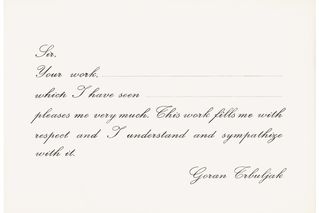 Sir.
Your work,
which I have seen
pleases me very much. This work fills me with
respect and I understand and sympathize
with it.
Goran Trbuljak